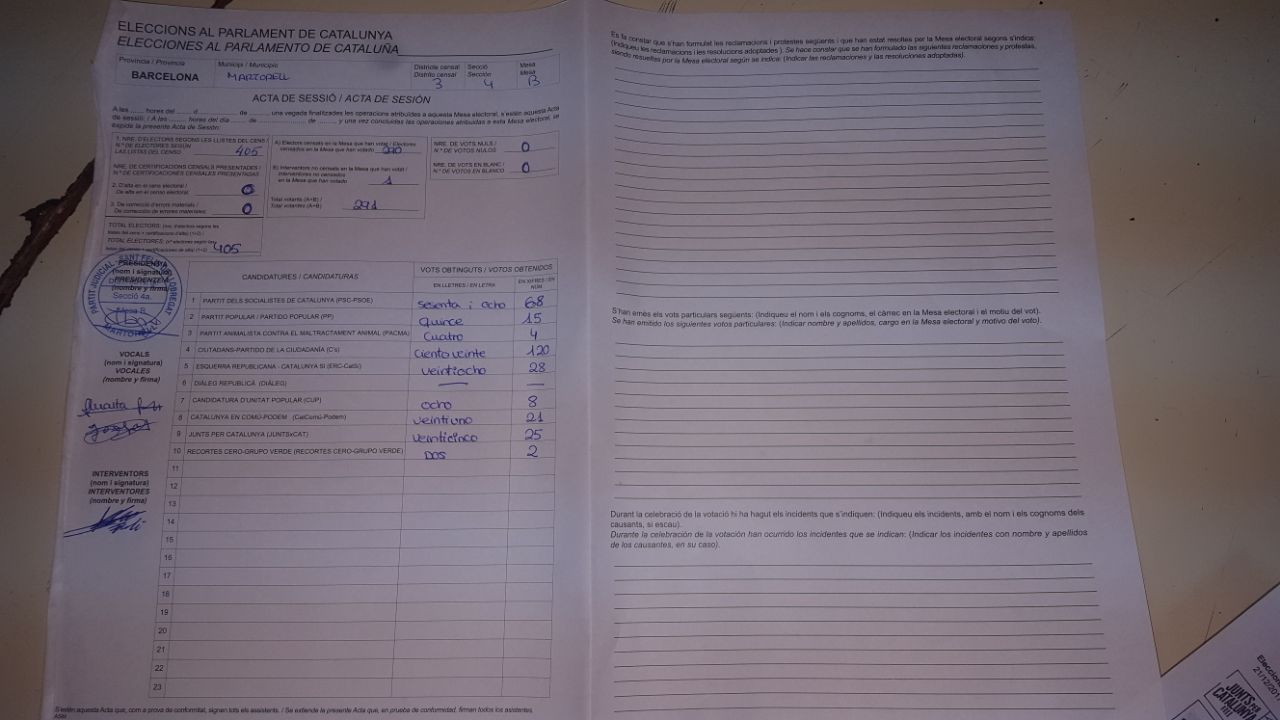 ELECCIONS AL PARLAMENT DE CATALUNYA
ELECCIONES AL PARLAMENTO DE CATALUÑA
Província / Provincia
Municipi / Municipio
Districte censal
Distrito censal
Secció
Sección
Mesa
Mesa
BARCELONA
MARTORELL
3
4
B
ACTA DE SESSIÓ / ACTA DE SESIÓN
A les ...... hores del ...... d ............ de ........ una vegada finalitzades les operacions atribuïdes a aquesta Mesa electoral, s'estén aquesta Acta
de sessió: / A las ........ hores del día ...... de ............ de ........ y una vez concluidas las operaciones atribuidas a esta Mesa electoral, se
expide la presente Acta de Sesión:
1. NRE. D'ELECTORS SEGONS LES LLISTES DEL CENS /
N.º DE ELECTORES SEGÚN
LAS LISTAS DEL CENSO
405
NRE. DE CERTIFICACIONS CENSALS PRESENTADES /
N.º DE CERTIFICACIONES CENSALES PRESENTADAS
2. D'alta en el cens electoral /
De alta en el censo electoral:
0
3. De correcció d'errors materials /
De corrección de errores materiales:
0
TOTAL ELECTORS:
TOTAL ELECTORES:
405
A) Electors censats en la Mesa que han votat / Electores
censados en la Mesa que han votado
290
B) Interventors no censats en la Mesa que han votat /
Interventores no censados
en la Mesa que han votado
1
Total votants (A+B) /
Total votantes (A+B)
291
NRE. DE VOTS NULS /
N.º DE VOTOS NULOS
0
NRE. DE VOTS EN BLANC /
N.º DE VOTOS EN BLANCO
0
PARTIT JUDICIAL SANT FELIU LLOBREGAT
Secció 4a.
Mesa B
MARTORELL
PRESIDÈNCIA
(nom i signatura)
PRESIDENTE/A
(nombre y firma)
CANDIDATURES / CANDIDATURAS
VOTS OBTINGUTS / VOTOS OBTENIDOS
EN LLETRES / EN LETRA
EN XIFRES / EN NÚM.
1 PARTIT DELS SOCIALISTES DE CATALUNYA (PSC-PSOE) sesenta i ocho 68
2 PARTIT POPULAR / PARTIDO POPULAR (PP) quince 15
3 PARTIT ANIMALISTA CONTRA EL MALTRACTAMENT ANIMAL (PACMA) cuatro 4
4 CIUTADANS-PARTIDO DE LA CIUDADANÍA (C's) ciento veinte 120
5 ESQUERRA REPUBLICANA - CATALUNYA SÍ (ERC-CatSí) veintiocho 28
6 DIÀLEG REPUBLICÀ (DIÀLEG) — —
7 CANDIDATURA D'UNITAT POPULAR (CUP) ocho 8
8 CATALUNYA EN COMÚ-PODEM (CatComú-Podem) veintiuno 21
9 JUNTS PER CATALUNYA (JUNTSxCAT) veinticinco 25
10 RECORTES CERO-GRUPO VERDE (RECORTES CERO-GRUPO VERDE) DOS 2
11
12
13
14
15
16
17
18
19
20
21
22
23
VOCALS
(nom i signatura)
VOCALES
(nombre y firma)
INTERVENTORS
(nom i signatura)
INTERVENTORES
(nombre y firma)
S'estén aquesta Acta que, com a prova de conformitat, signen tots els assistents. / Se extiende la presente Acta que, en prueba de conformidad, firman todos los asistentes.
Es fa constar que s'han formulat les reclamacions i protestes següents i que han estat resoltes per la Mesa electoral segons s'indica:
(Indiqueu les reclamacions i les resolucions adoptades). Se hace constar que se han formulado las siguientes reclamaciones y protestas,
siendo resueltas por la Mesa electoral según se indica: (Indicar las reclamaciones y las resoluciones adoptadas).
S'han emès els vots particulars següents: (Indiqueu el nom i els cognoms, el càrrec en la Mesa electoral i el motiu del vot).
Se han emitido los siguientes votos particulares: (Indicar nombre y apellidos, cargo en la Mesa electoral y motivo del voto).
Durant la celebració de la votació hi ha hagut els incidents que s'indiquen: (Indiqueu els incidents, amb el nom i els cognoms dels
causants, si escau).
Durante la celebración de la votación han ocurrido los incidentes que se indican: (Indicar los incidentes con nombre y apellidos
de los causantes, en su caso).
21/12/20
JUNTS PER
CATALUNYA